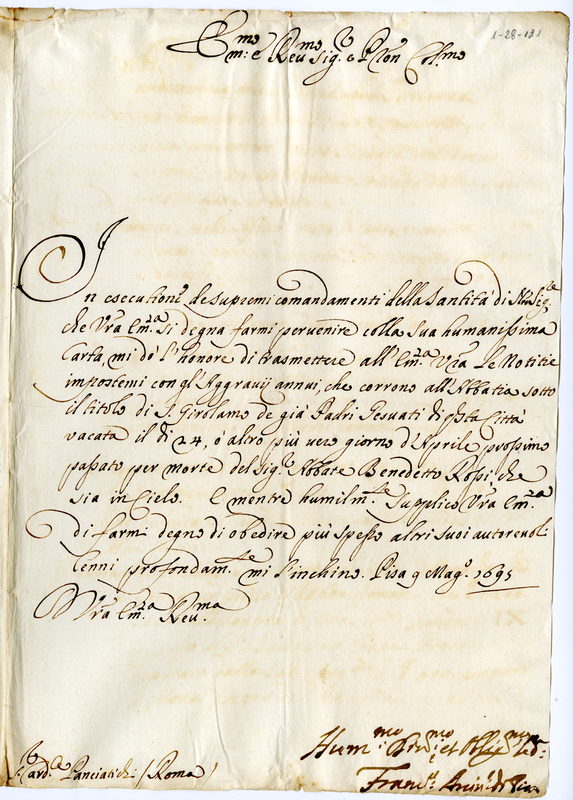 1-28-191
Em.mo e Reu.mo Sig.re e Pron Col.mo
In esecution.e de supremi comandamenti della Santità di N͞ro Sig.re
che Vr͞a Em.za si degna farmi peruenire colla sua humanissima
Carta, mi dò l'honore di trasmettere all'Em.za Vr͞a le Notitie
impostemi con gl'Aggrauij annui, che corrono all'Abbatia sotto
il titolo di S. Girolamo de già Padri Gesuati di q͞sta Città
vacata il dì 24, ò altro più vero giorno d'Aprile prossimo
passato per morte del Sig.r Abbate Benedetto Rossi, che
sia in Cielo. E mentre humilm.te supplico Vr͞a Em.za
di farmi degno di obedire più spesso altri suoi autoreuoli
cenni profondam.te mi l'inchino. Pisa 9 Mag.o 1695
D Vr͞a Em.za Reu.ma
Hum.mo Diu.mo et Oblig.mo
S.r Card.le Panciatichi (Roma)
Fran.co Arciu.o di Pisa